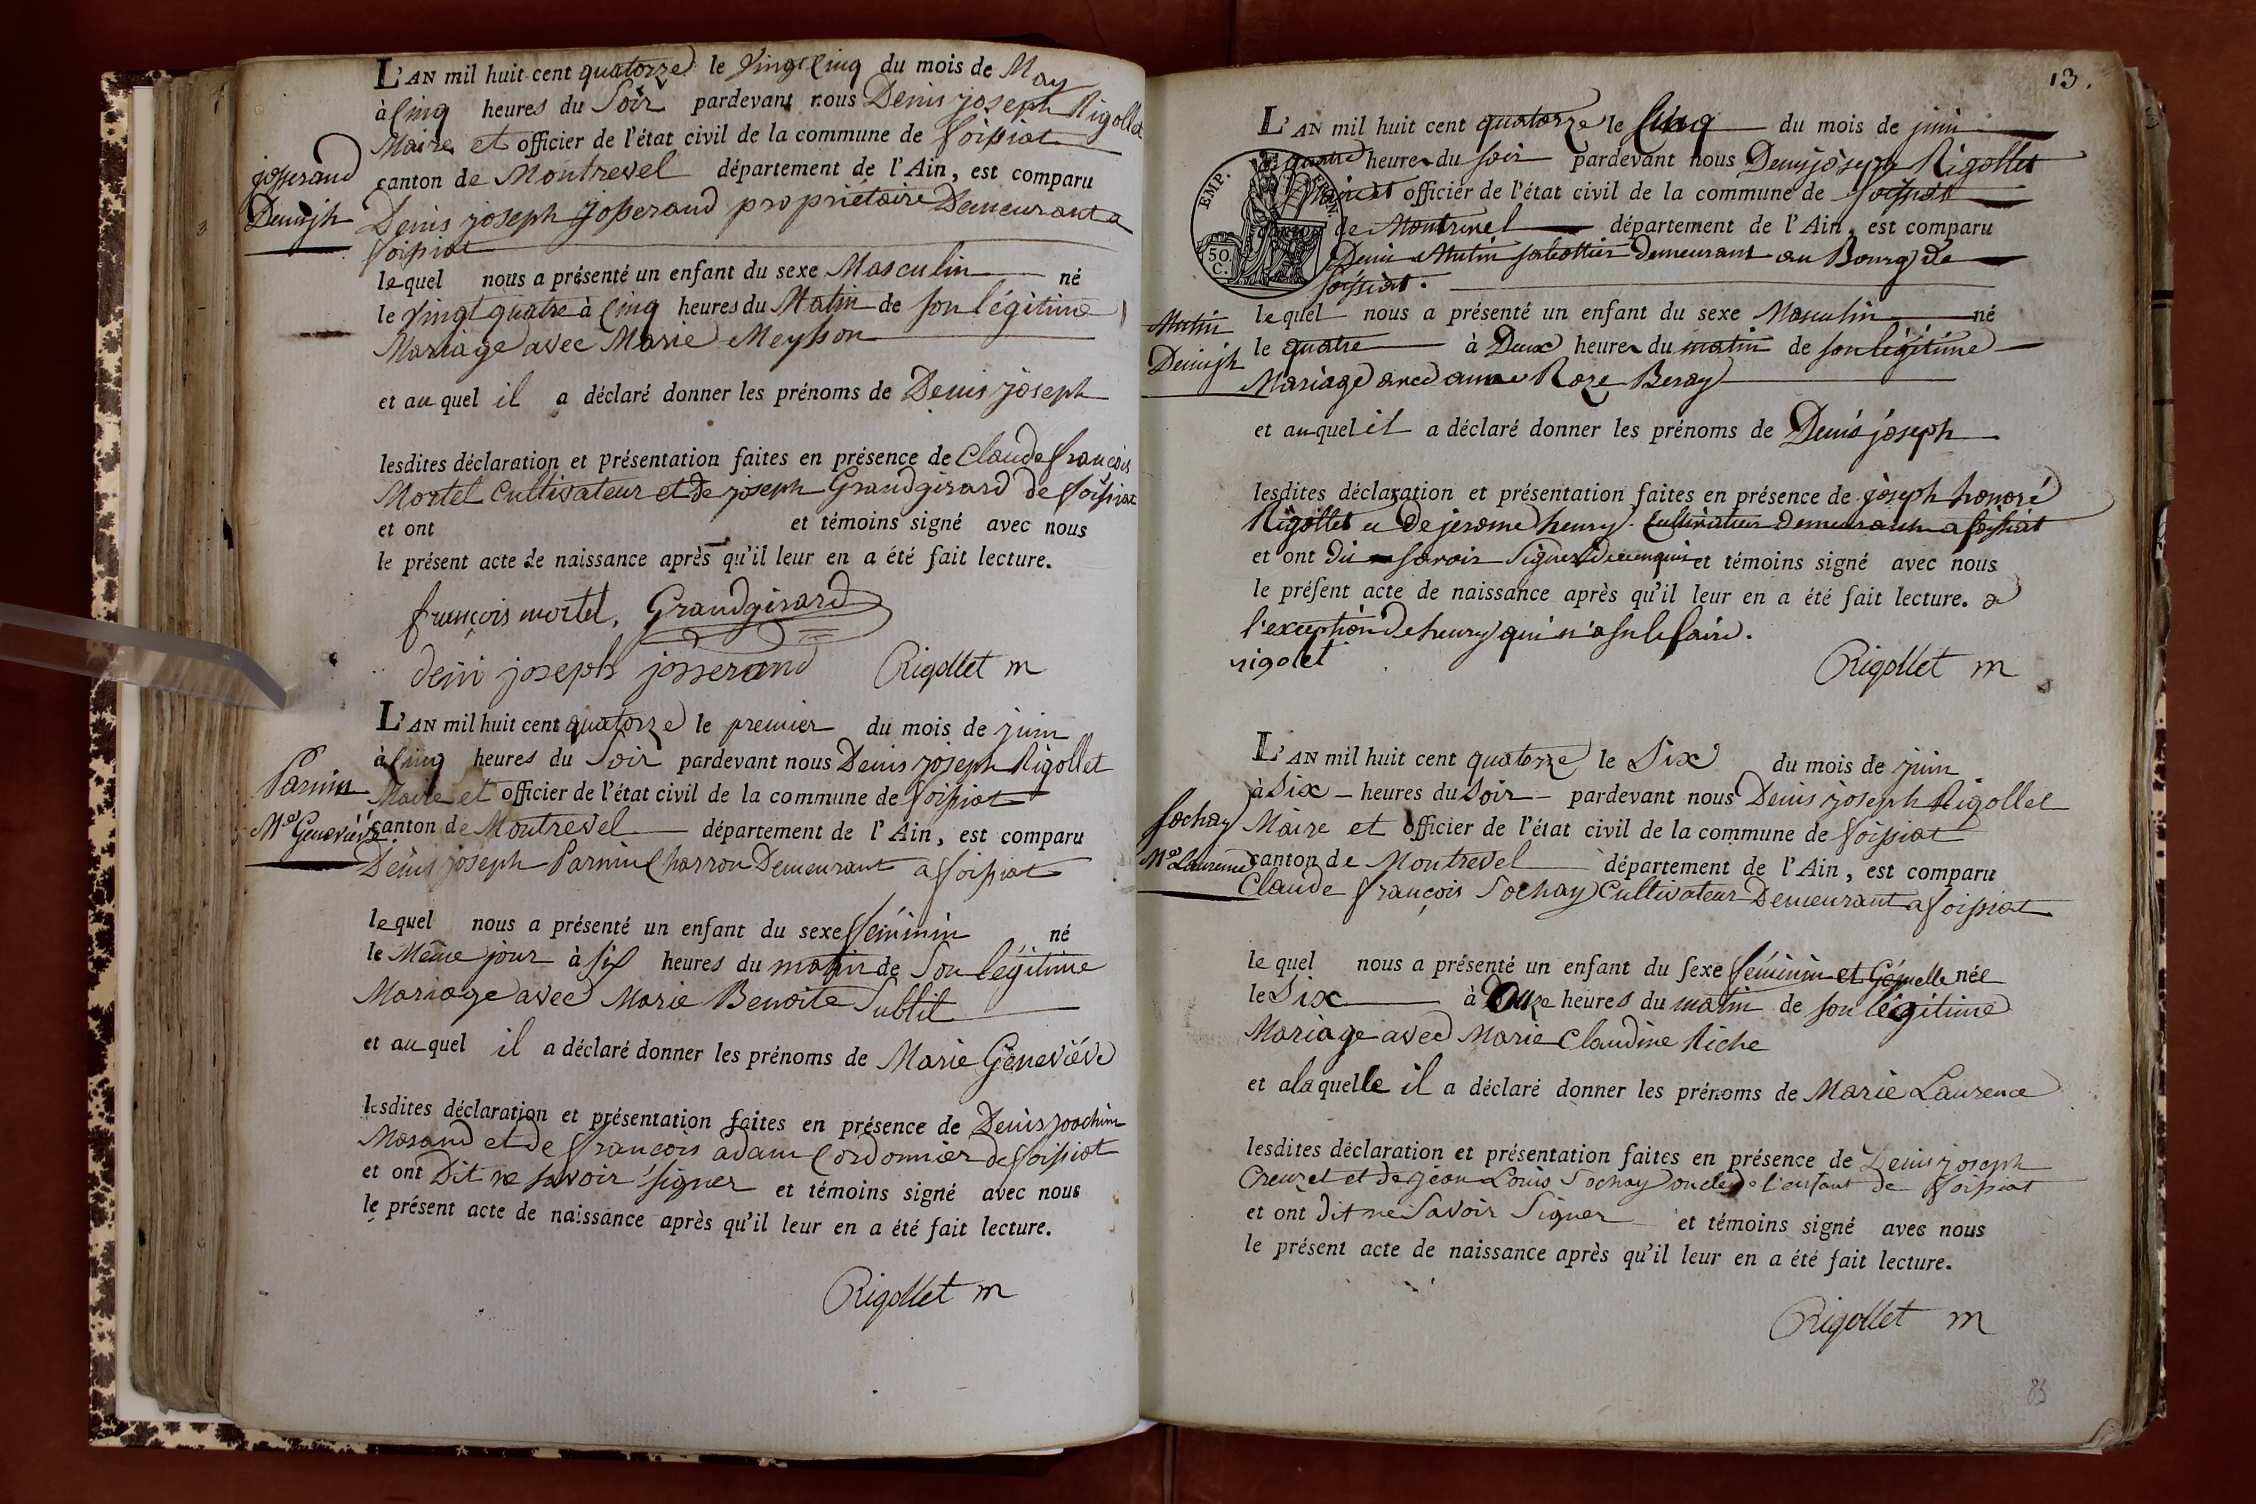 L'AN mil huit cent quatorze le vingt cinq du mois de May
à cinq heures du Soir pardevant nous Denis joseph Rigollet
Maire et officier de l'état civil de la commune de foissiat
josserand
canton de Montrevel département de l'Ain, est comparu
Denis jh
Denis joseph josserand propriétaire Demeurant a
foissiat
lequel nous a présenté un enfant du sexe Masculin né
le vingt quatre à cinq heures du Matin de son légitime
Mariage avec Marie Meysson
et au quel il a déclaré donner les prénoms de Denis joseph
lesdites déclaration et présentation faites en présence de Claude françois
Mortel Cultivateur et de joseph Grandgirard de foissiat
et ont et témoins signé avec nous
le présent acte de naissance après qu'il leur en a été fait lecture.
françois mortel, Grandgirard
deni joseph josserand Rigollet m
L'AN mil huit cent quatorze le premier du mois de juin
à cinq heures du Soir pardevant nous Denis joseph Rigollet
Parnin
Maire et officier de l'état civil de la commune de foissiat
Mie Geneviéve
canton de Montrevel département de l'Ain, est comparu
Denis joseph Parnin Charron Demeurant a foissiat
lequel nous a présenté un enfant du sexe féminin né
le Même jour à six heures du matin de Son légitime
Mariage avec Marie Benoite Subtil
et au quel il a déclaré donner les prénoms de Marie Geneviéve
lesdites déclaration et présentation faites en présence de Denis joachim
Morand et de françois adam Cordonnier de foissiat
et ont Dit ne savoir signer et témoins signé avec nous
le présent acte de naissance après qu'il leur en a été fait lecture.
Rigollet m
13.
L'AN mil huit cent quatorze le Cinq du mois de juin
à quatre heures du soir pardevant nous Denis joseph Rigollet
EMP. FRAN.
Maire et officier de l'état civil de la commune de foissiat
de Montrevel département de l'Ain, est comparu
50 C.
Denis Mutin sabottier demeurant au Bourg de
foissiat.
Mutin
lequel nous a présenté un enfant du sexe Masculin né
Denis jh
le quatre à Deux heures du matin de son légitime
Mariage avec anne Roze Beray
et au quel il a déclaré donner les prénoms de Denis joseph
lesdites déclaration et présentation faites en présence de joseph honoré
Rigollet et De jerome henry. Cultivateurs demeurant a foissiat
et ont dit savoir Signer et témoins signé avec nous
le présent acte de naissance après qu'il leur en a été fait lecture. a
l'exception De henry qui n'a su le faire.
rigolet
Rigollet m
L'AN mil huit cent quatorze le Six du mois de juin
à six heures du soir pardevant nous Denis joseph Rigollet
Sochay
Maire et officier de l'état civil de la commune de foissiat
Mie Laurence
canton de Montrevel département de l'Ain, est comparu
Claude françois Sochay Cultivateur Demeurant a foissiat
le quel nous a présenté un enfant du sexe féminin et Gémelle née
le Six à Onze heures du matin de son légitime
Mariage avec Marie Claudine Riche
et a la quelle il a déclaré donner les prénoms de Marie Laurence
lesdites déclaration et présentation faites en présence de Denis joseph
Creuzet et de jean Louis Sochay oncle de l'enfant de foissiat
et ont dit ne Savoir Signer et témoins signé avec nous
le présent acte de naissance après qu'il leur en a été fait lecture.
Rigollet m